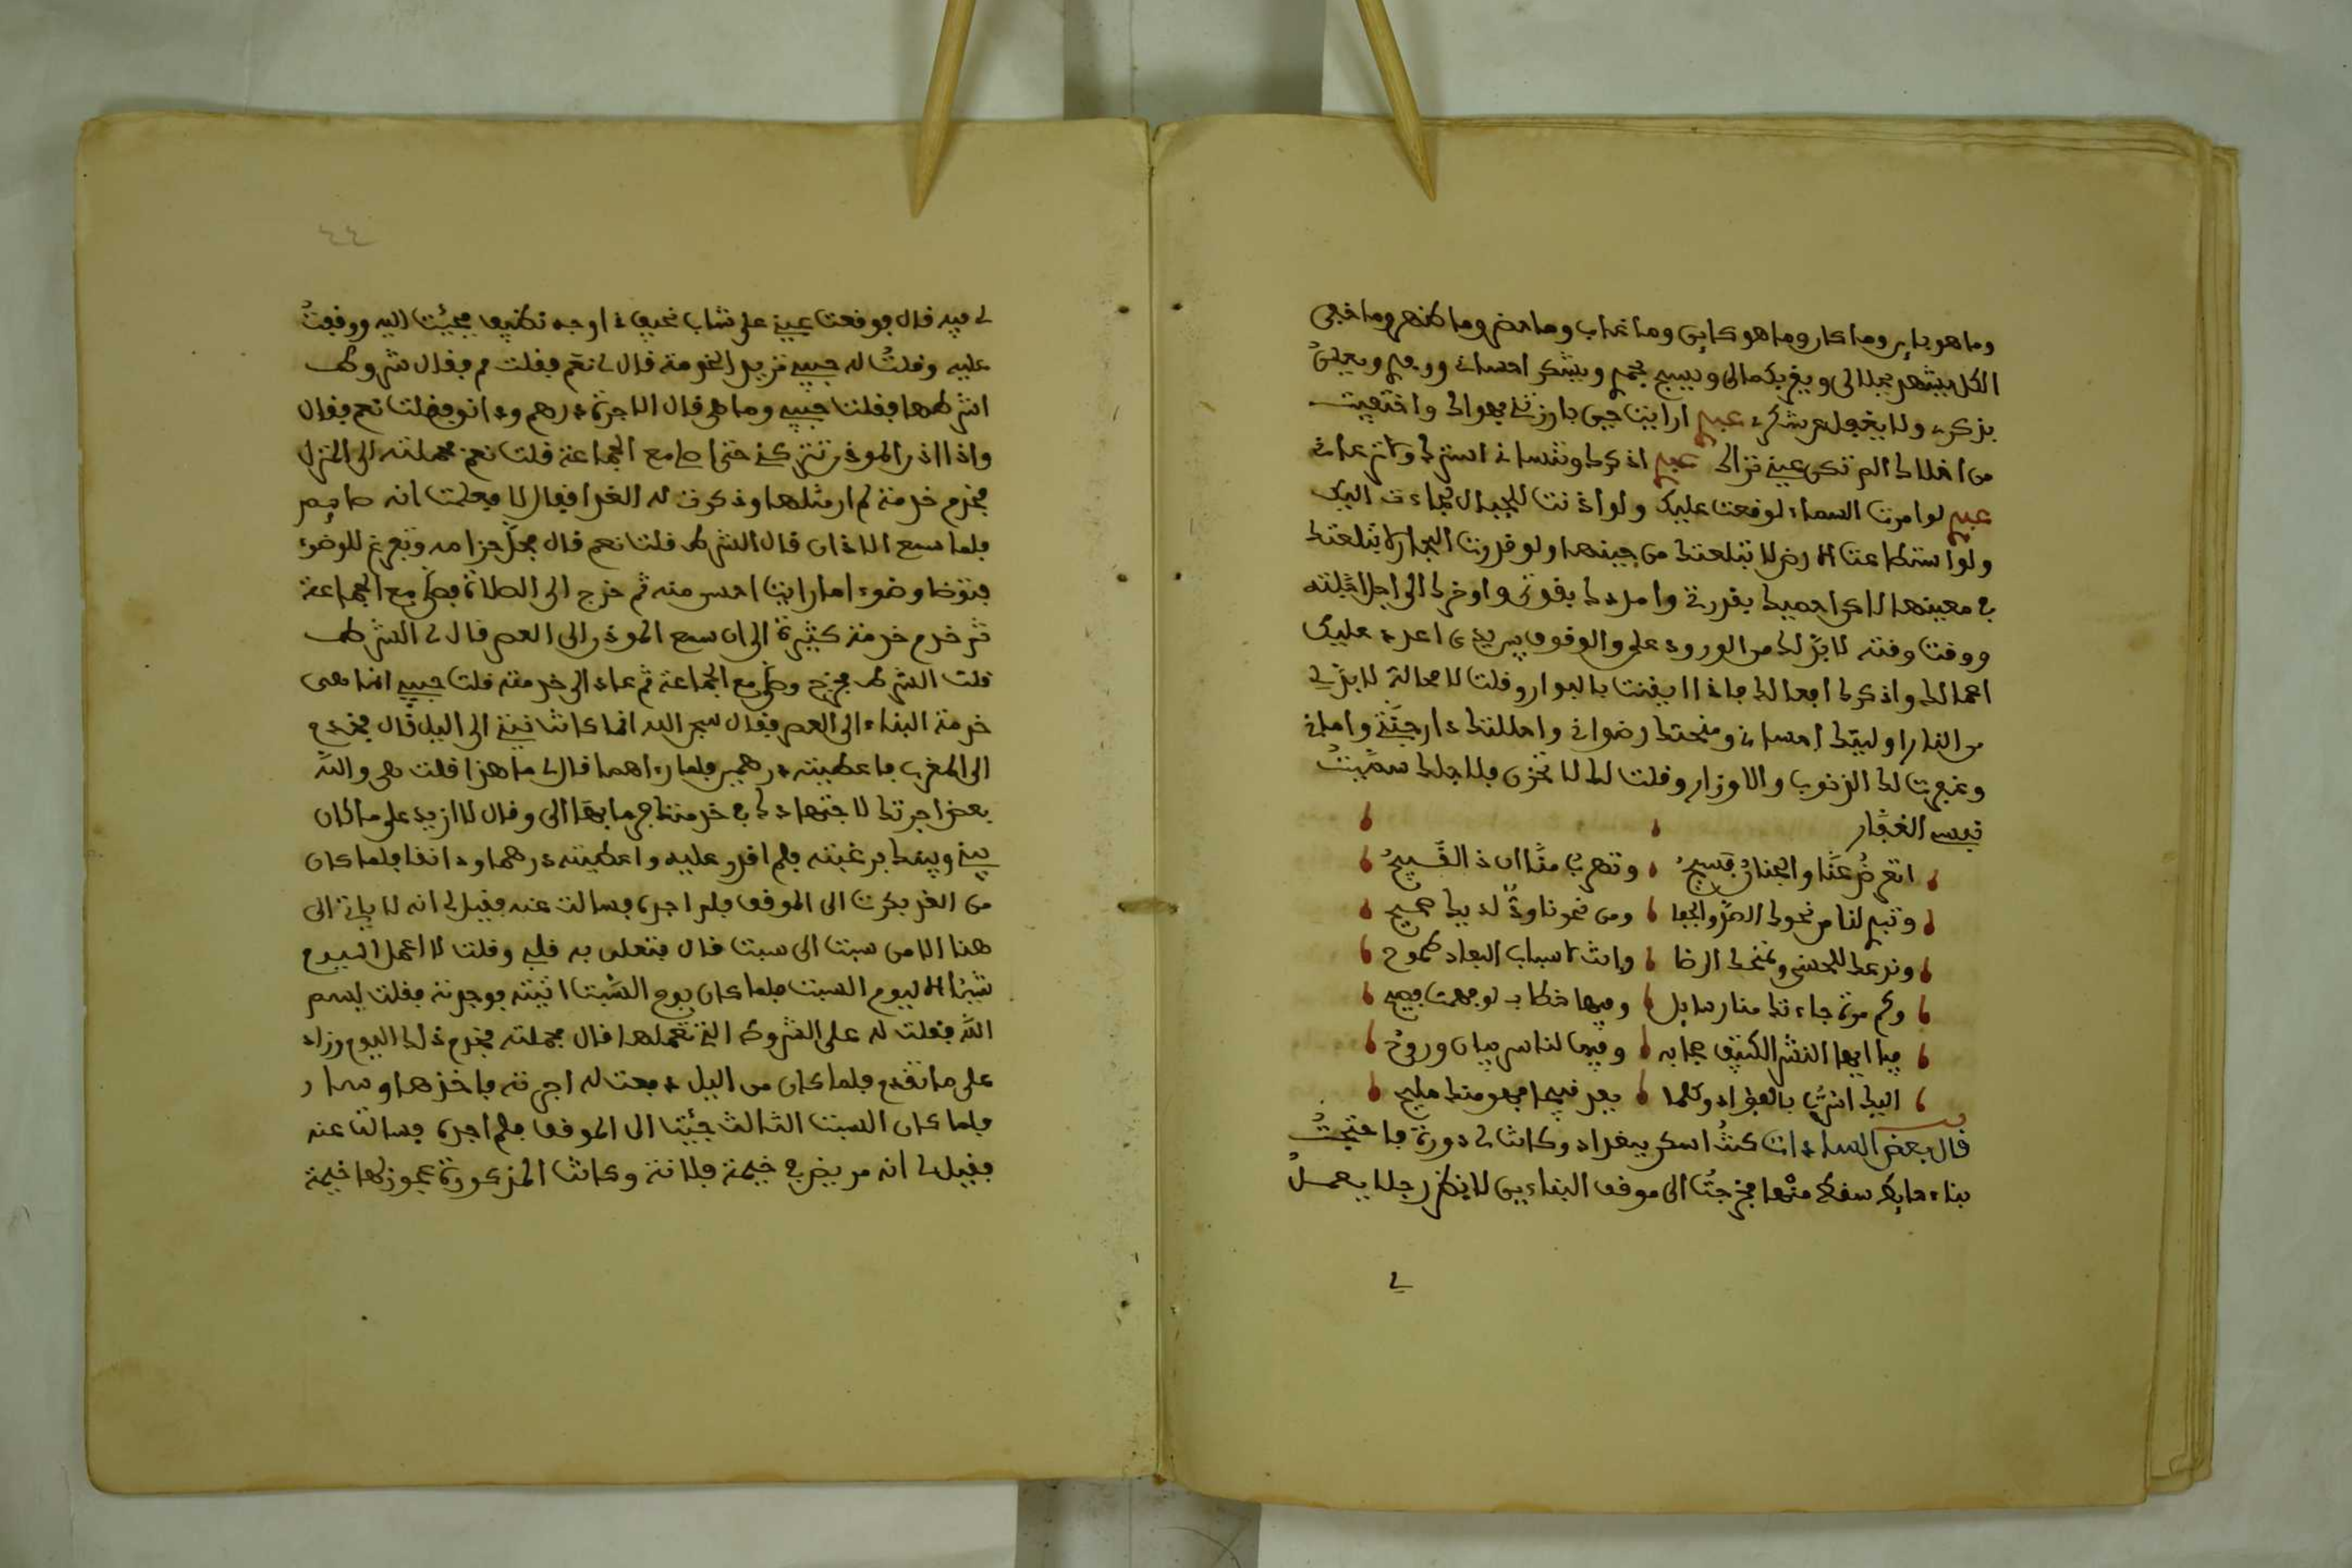 وما هو باين وما كان وما هو كاين وما غاب وما حضر وما ظهر وما خفى
الكل يشهد بجلالى ويقر بكمالى ويسبح بحمدى ويشكر احسانى وورعدى ويعلن
بذكرى ولا يغفل عن شكرى عبدى ارايت حين بارزتنى بهواك واختفيت
من اخلاك الم تكن عينى تراك عبدى اذكرك وتنسانى استرك ولا ترعانى
عبدى لو امرت السماء لوقعت عليك ولو اذنت للجبال لجاءت اليك
ولو استطاعت الارض لابتلعتك من حينها ولو قدرت البحار لابتلعتك
فى معينها لاكن احميك بقدرتى وامدك بقوتى واوخرك الى اجل اجلته
ووقت وقته لا بد لك من الورود على والوقوف بين يدى اعدد عليك
اعمالك واذكرك افعالك فاذا ايقنت بالبوار وقلت لا محالة لا بد لى
من النار اوليتك احسانى ومنحتك رضوانى واحللتك دار جنتى وامانى
وغفرت لك الذنوب والاوزار وقلت لك لا تحزن فلاجلك سميت
نفسى الغفار
اتعرض عنا والجناب فسيح وتهرب منا ان ذا القبيح
وتبدى لنا من نحوك الصد والجفا ومن نحونا ود لديك صحيح
وندعك للحسنى ونمنحك الرضا وانت لاسباب البعاد طموح
وكم مرة جاءتك منا رسايل وفيها خطاب لو فهمت فصيح
فيا ايها النشر الكثيف حجابه وفيها لناس بيان وروح
اليك اشرت بالفؤاد وكلما بعد قبيحا فهو منك مليح
قال بعض السادات كنت اسكن ببغداد وكانت لى دورة فاحتجت
بناء حايط سقط منها فخرجت الى موقف البناءين لانظر رجلا يعمل
لى
٤٤
لى فيه قال فوقعت عينى على شاب نحيف ذا وجه نظيف فجئت اليه ووقفت
عليه وقلت له حبيبى تريد الخدمة قال لى نعم فقلت قم فقال شروط
اشرطها فقلت حبيبى وما هى قال الاجرة درهم ودانق فقلت نعم فقال
واذا اذن الموذن تتركنى حتى اصلى مع الجماعة قلت نعم فحملته الى المنزل
فخدم خدمة لم ار مثلها وذكرت له الغدا فقال لا فعلمت انه صايم
فلما سمع الاذان قال الشرط قلت نعم قال فحل حزامه وتفرغ للوضوء
فتوضا وضوء ما رايت احسن منه ثم خرج الى الصلاة فصلى مع الجماعة
ثم خدم خدمة كثيرة الى ان سمع الموذن الى العصر قال لى الشرط
قلت الشرط فخرج وصلى مع الجماعة ثم عاد الى خدمته قلت حبيبى انما هى
خدمة البناء الى العصر فقال سبحن الله انما كانت نيتى الى اليل قال فخدم
الى المغرب فاعطيته درهمين فلما راهما قال لى ما هذا قلت هى والله
بعض اجرتك لاجتهادك فى خدمتنا فرمابها الى وقال لا ازيد على ما كان
بينى وبينك فرغبته فلم اقدر عليه واعطيته درهما ودانقا فلما كان
من الغد بكرت الى الموقف فلم اجده فسالت عنه فقيل لى انه لا ياتى الى
هنا الا من سبت الى سبت قال فتعلق به قلبى وقلت لا اعمل اليوم
شيئا الا ليوم السبت فلما كان يوم السبت اتيته فوجدته فقلت بسم
الله فقلت له على الشروط التى تعملها قال فحملته فخدم ذلك اليوم وزاد
على ما تقدم فلما كان من اليل دفعت له اجرته فاخذها وسار
فلما كان السبت الثالث جئت الى الموقف فلم اجده فسالت عنه
فقيل لى انه مريض فى خيمة فلانة وكانت المذكورة عجوز لها خيمة